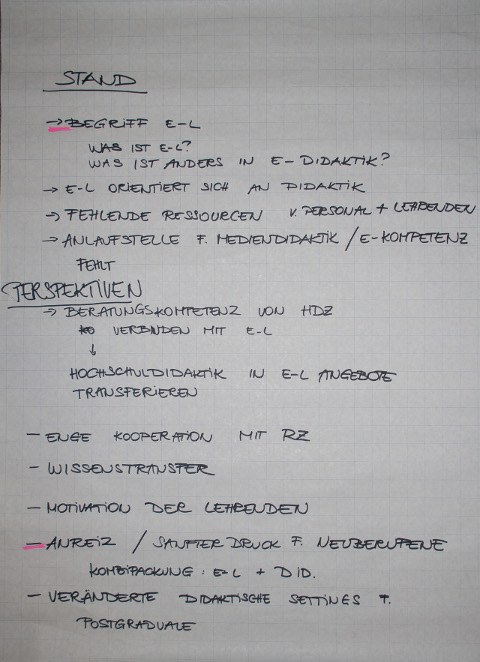 STAND
→ BEGRIFF E-L
WAS IST E-L?
WAS IST ANDERS IN E-DIDAKTIK?
→ E-L ORIENTIERT SICH AN DIDAKTIK
→ FEHLENDE RESSOURCEN V. PERSONAL + LEHRENDEN
→ ANLAUFSTELLE F. MEDIENDIDAKTIK / E-KOMPETENZ
FEHLT
PERSPEKTIVEN
→ BERATUNGSKOMPETENZ VON HDZ
VERBINDEN MIT E-L
↓
HOCHSCHULDIDAKTIK IN E-L ANGEBOTE
TRANSFERIEREN
- ENGE KOOPERATION MIT RZ
- WISSENSTRANSFER
- MOTIVATION DER LEHRENDEN
- ANREIZ / SANFTER DRUCK F. NEUBERUFENE
KOMBIPACKUNG: E-L + DID.
- VERÄNDERTE DIDAKTISCHE SETTINGS F.
POSTGRADUALE